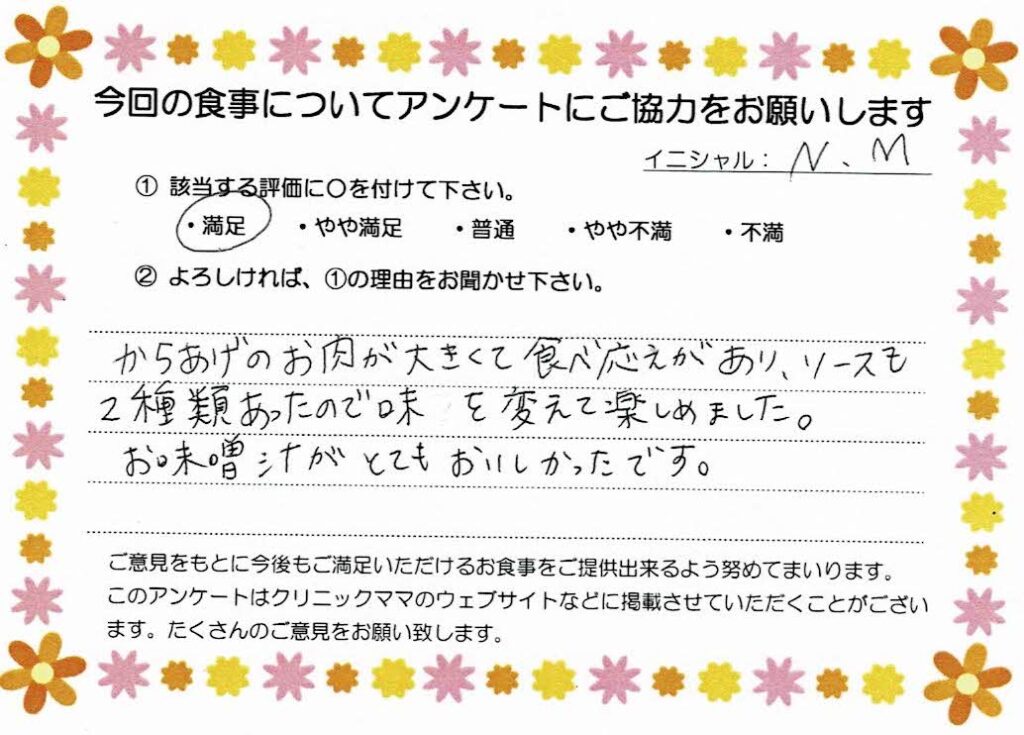 今回の食事についてアンケートにご協力をお願いします
イニシャル： N、M
① 該当する評価に○を付けて下さい。
・満足 ・やや満足 ・普通 ・やや不満 ・不満
② よろしければ、①の理由をお聞かせ下さい。
からあげのお肉が大きくて食べ応えがあり、ソースも
2種類あったので味を変えて楽しめました。
お味噌汁がとてもおいしかったです。
ご意見をもとに今後もご満足いただけるお食事をご提供出来るよう努めてまいります。
このアンケートはクリニックママのウェブサイトなどに掲載させていただくことがござい
ます。たくさんのご意見をお願い致します。